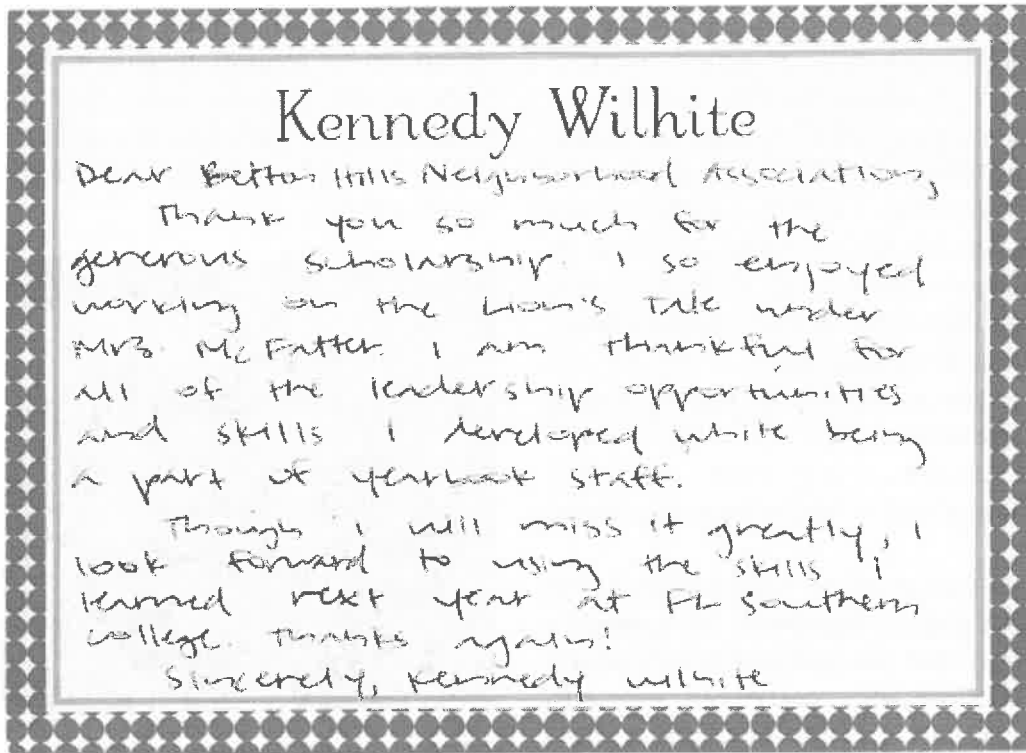 Kennedy Wilhite
Dear Betton Hills Neighborhood Association,
Thank you so much for the
generous scholarship. I so enjoyed
working on the Lion's Tale under
Mrs. McFatter. I am thankful for
all of the leadership opportunities
and skills I developed while being
a part of yearbook staff.
Though I will miss it greatly, I
look forward to using the skills I
learned next year at FL Southern
college. Thanks again!
Sincerely, Kennedy Wilhite